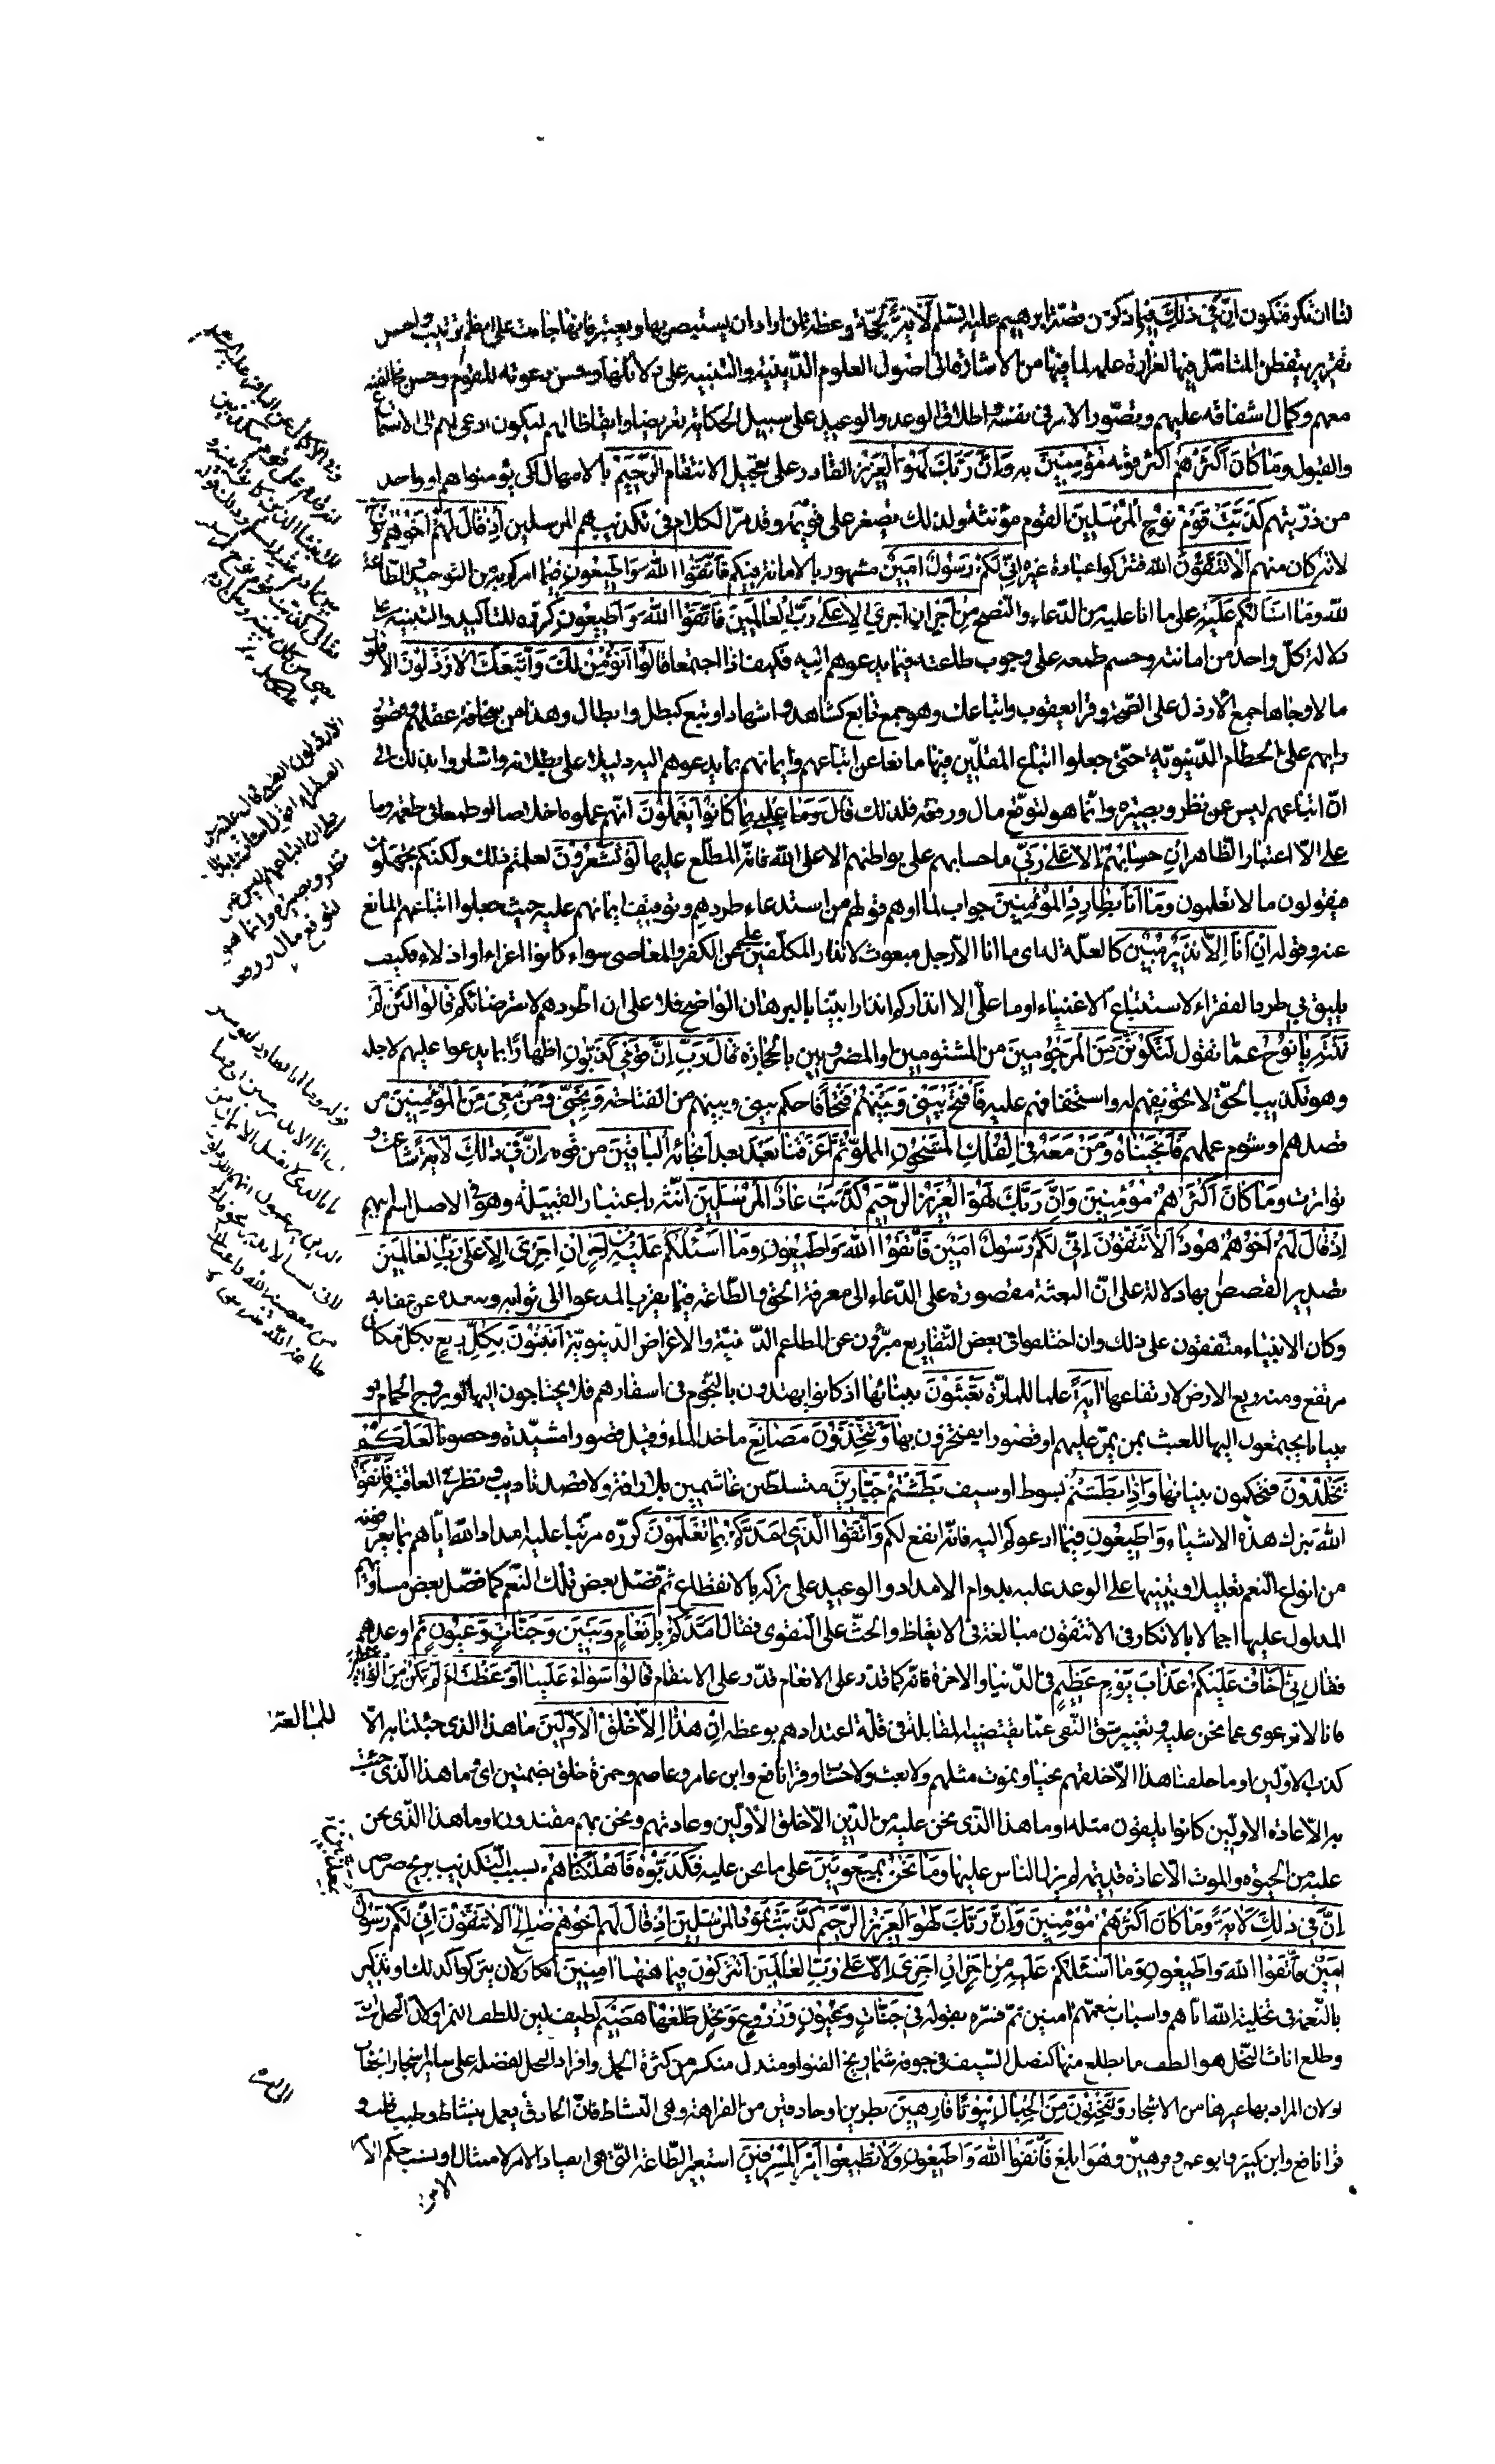 لنا ان نكر فنكون اِنَّ فِي ذٰلِكَ فيما ذكر من قصّة ابرهيم عليه السلم لَاٰيَةً لحجّة وعظة لمن اراد ان يستبصر بها ويعتبر فانها جاءت على انظم ترتيب واحسن
تقرير يتفطن المتأمّل فيها لغزارة علمه لما فيها من الاشارة الى اصول العلوم الدّينية والتنبيه على دلائلها وحسن دعوته للقوم وحسن مخالفته
معهم وكمال اشفاقه عليهم وتصوّر الامر في نفسه واطلاق الوعد والوعيد على سبيل الحكاية تعريضا وايقاظا لهم ليكون ادعى لهم الى الاستماع
والقبول وَمَا كَانَ اَكْثَرُهُمْ اكثر قومه مُؤْمِنِينَ به وَاِنَّ رَبَّكَ لَهُوَ الْعَزِيزُ القادر على تعجيل الانتقام الرَّحِيمُ بالامهال لكى يؤمنوا هم او واحد
من ذرّيتهم كَذَّبَتْ قَوْمُ نُوحٍ الْمُرْسَلِينَ القوم مؤنثة ولذلك تصغر على قويمة وقد مرّ الكلام فى تكذيبهم المرسلين اِذْ قَالَ لَهُمْ اَخُوهُمْ نُوحٌ
لانه كان منهم اَلَا تَتَّقُونَ الله فتتركوا عبادة غيره اِنِّي لَكُمْ رَسُولٌ اَمِينٌ مشهور بالامانة فيكم فَاتَّقُوا اللّٰهَ وَاَطِيعُونِ فيما امركم به من التوحيد والطاعة
للّه وَمَا اَسْئَلُكُمْ عَلَيْهِ على ما انا عليه من الدّعاء والنّصح مِنْ اَجْرٍ اِنْ اَجْرِيَ اِلَّا عَلَىٰ رَبِّ الْعَالَمِينَ فَاتَّقُوا اللّٰهَ وَاَطِيعُونِ كرّره للتأكيد والتنبيه على
دلالة كلّ واحد من امانته وحسم طمعه على وجوب طاعته فيما يدعوهم اليه فكيف اذا اجتمعا قَالُوا اَنُؤْمِنُ لَكَ وَاتَّبَعَكَ الْاَرْذَلُونَ الاقلّون
مالا وجاها جمع الارذل على الصّحة وقرا يعقوب واتباعك وهو جمع تابع كشاهد واشهاد او تبع كبطل وابطال وهذا من سخافة عقلهم وقصور
رايهم على الحطام الدّنيويّة حتّى جعلوا اتباع المقلّين فيها مانعا عن اتباعهم وايمانهم بما يدعوهم اليه دليلا على بطلانه واشاروا بذلك الى
انّ اتباعهم ليس عن نظر وبصيرة وانّما هو لتوقّع مال ورفعة فلذلك قَالَ وَمَا عِلْمِي بِمَا كَانُوا يَعْمَلُونَ انّهم عملوه اخلاصا او طمعا فى طعمة وما
علىّ الّا اعتبار الظّاهر اِنْ حِسَابُهُمْ اِلَّا عَلَىٰ رَبِّي ما حسابهم على بواطنهم الا على اللّه فانّه المطّلع عليها لَوْ تَشْعُرُونَ لعلمتم ذلك ولكنّكم تجهلون
فتقولون ما لا تعلمون وَمَا اَنَا بِطَارِدِ الْمُؤْمِنِينَ جواب لما اوهم قولهم من استدعاء طردهم وتوقيف ايمانهم عليه حيث جعلوا اتباعهم المانع
عنه وقوله اِنْ اَنَا اِلَّا نَذِيرٌ مُبِينٌ كالعلّة له اى ما انا الّا رجل مبعوث لانذار المكلّفين عن الكفر والمعاصى سواء كانوا اعزاء او اذلاء فكيف
يليق بى طرد الفقراء لاستتباع الاغنياء او ما علىّ الا انذاركم انذارا بيّنا بالبرهان الواضح فلا علىّ ان اطردهم لاسترضائكم قَالُوا لَئِنْ لَمْ
تَنْتَهِ يَا نُوحُ عمّا تقول لَتَكُونَنَّ مِنَ الْمَرْجُومِينَ من المشتومين او المضروبين بالحجارة قَالَ رَبِّ اِنَّ قَوْمِي كَذَّبُونِ اظهارًا لما يدعوا عليهم لاجله
وهو تكذيب الحقّ لا تخويفهم له واستخفافهم عليه فَافْتَحْ بَيْنِي وَبَيْنَهُمْ فَتْحًا فاحكم بينى وبينهم من الفتاحة وَنَجِّنِي وَمَنْ مَعِيَ مِنَ الْمُؤْمِنِينَ من
قصدهم او شوم عملهم فَاَنْجَيْنَاهُ وَمَنْ مَعَهُ فِي الْفُلْكِ الْمَشْحُونِ المملوّ ثُمَّ اَغْرَقْنَا بَعْدُ بعد انجائه الْبَاقِينَ من قومه اِنَّ فِي ذٰلِكَ لَاٰيَةً شاعت و
تواترت وَمَا كَانَ اَكْثَرُهُمْ مُؤْمِنِينَ وَاِنَّ رَبَّكَ لَهُوَ الْعَزِيزُ الرَّحِيمُ كَذَّبَتْ عَادٌ الْمُرْسَلِينَ انّثه باعتبار القبيلة وهو فى الاصل اسم ابيهم
اِذْ قَالَ لَهُمْ اَخُوهُمْ هُودٌ اَلَا تَتَّقُونَ اِنِّي لَكُمْ رَسُولٌ اَمِينٌ فَاتَّقُوا اللّٰهَ وَاَطِيعُونِ وَمَا اَسْئَلُكُمْ عَلَيْهِ مِنْ اَجْرٍ اِنْ اَجْرِيَ اِلَّا عَلَىٰ رَبِّ الْعَالَمِينَ
تصدير القصص بها دلالة على انّ البعثة مقصورة على الدّعاء الى معرفة الحق والطّاعة فيما يقرب المدعوا الى ثوابه ويبعده عن عقابه
وكان الانبياء متّفقون على ذلك وان اختلفوا فى بعض التّفاريع مبرّؤن عن المطامع الدّنيّة والاغراض الدّنيويّة اَتَبْنُونَ بِكُلِّ رِيعٍ بكلّ مكان
مرتفع ومنه ريع الارض لارتفاعها اٰيَةً علما للمارّة تَعْبَثُونَ ببنائها اذ كانوا يهتدون بالنّجوم فى اسفارهم فلا يحتاجون اليها او بروج الحمام او
بنيانا يجتمعون اليها للعبث بمن يمرّ عليهم او قصورا يفتخرون بها وَتَتَّخِذُونَ مَصَانِعَ ماخذ الماء وقيل قصورا مشيّدة وحصونا لَعَلَّكُمْ
تَخْلُدُونَ فتحكمون بنيانها وَاِذَا بَطَشْتُمْ بسوط او سيف بَطَشْتُمْ جَبَّارِينَ متسلّطين غاشمين بلا رافة ولا قصد تاديب ونظر فى العاقبة فَاتَّقُوا
اللّٰهَ بترك هذه الاشياء وَاَطِيعُونِ فيما ادعوكم اليه فانّه انفع لكم وَاتَّقُوا الَّذِي اَمَدَّكُمْ بِمَا تَعْلَمُونَ كرّره مرتّبا عليه امداد اللّه ايّاهم بما يعرفونه
من انواع النّعم تعليلا وتنبيها على الوعد عليه بدوام الامداد والوعيد على تركه بالانقطاع ثمّ فصّل بعض تلك النّعم كما فصّل بعض مساويهم
المدلول عليها اجمالا بالانكار فى الا تتقون مبالغة فى الايقاظ والحثّ على التقوى فقال اَمَدَّكُمْ بِاَنْعَامٍ وَبَنِينَ وَجَنَّاتٍ وَعُيُونٍ ثمّ اوعدهم
فقال اِنِّي اَخَافُ عَلَيْكُمْ عَذَابَ يَوْمٍ عَظِيمٍ فى الدّنيا والاخرة فانّه كما قدر على الانعام قدر على الانتقام قَالُوا سَوَاءٌ عَلَيْنَا اَوَعَظْتَ اَمْ لَمْ تَكُنْ مِنَ الْوَاعِظِينَ
فانا لا نرعوى عما نحن عليه وتغيير شق النّفى عمّا يقتضيه المقابلة فى قلّة اعتدادهم بوعظه اِنْ هٰذَا اِلَّا خُلُقُ الْاَوَّلِينَ ما هذا الذى جئتنا به الّا
للمبالغة
كذب الاوّلين او ما خلقنا هذا الّا خلقهم نحيا ونموت مثلهم ولا بعث ولا حساب وقرا نافع وابن عامر وعاصم وحمزة خلق بضمتين اى ما هذا الّذى جئت
به الّا عادة الاوّلين كانوا يلفقون مثله او ما هذا الّذى نحن عليه من الدّين الّا خلق الاوّلين وعادتهم ونحن بهم مقتدون او ما هذا الّذى نحن
عليه من الحيوة والموت الّا عادة قديمة لم يزل الناس عليها وَمَا نَحْنُ بِمُعَذَّبِينَ على ما نحن عليه فَكَذَّبُوهُ فَاَهْلَكْنَاهُمْ بسبب التّكذيب بريح صرصر
اِنَّ فِي ذٰلِكَ لَاٰيَةً وَمَا كَانَ اَكْثَرُهُمْ مُؤْمِنِينَ وَاِنَّ رَبَّكَ لَهُوَ الْعَزِيزُ الرَّحِيمُ كَذَّبَتْ ثَمُودُ الْمُرْسَلِينَ اِذْ قَالَ لَهُمْ اَخُوهُمْ صَالِحٌ اَلَا تَتَّقُونَ اِنِّي لَكُمْ رَسُولٌ
اَمِينٌ فَاتَّقُوا اللّٰهَ وَاَطِيعُونِ وَمَا اَسْئَلُكُمْ عَلَيْهِ مِنْ اَجْرٍ اِنْ اَجْرِيَ اِلَّا عَلَىٰ رَبِّ الْعَالَمِينَ اَتُتْرَكُونَ فِيمَا هٰهُنَا اٰمِنِينَ انكار لان يتركوا كذلك او تذكير
بالنّعمة فى تخلية اللّه ايّاهم واسباب تنعمهم امنين ثمّ فسّره بقوله فِي جَنَّاتٍ وَعُيُونٍ وَزُرُوعٍ وَنَخْلٍ طَلْعُهَا هَضِيمٌ لطيف لين للطف الثمر او لانّ النخل انثى
وطلع اناث النّخل هو الطف ما يطلع منها كنصل السّيف فى جوفه شماريخ القنو او متدل منكسر من كثرة الحمل وافراد النّخل لفضله على ساير اشجار الجنات
او لان المراد بها غيرها من الاشجار وَتَنْحِتُونَ مِنَ الْجِبَالِ بُيُوتًا فَارِهِينَ بطرين او حاذقين من الفراهة وهى النّشاط فانّ الحاذق يعمل بنشاط وطيب قلب و
قرا نافع وابن كثير وابو عمرو فرهين وهو ابلغ فَاتَّقُوا اللّٰهَ وَاَطِيعُونِ وَلَا تُطِيعُوا اَمْرَ الْمُسْرِفِينَ استعير الطّاعة التّى هى انقياد الامر لامتثال او نسب حكم الا
الامر